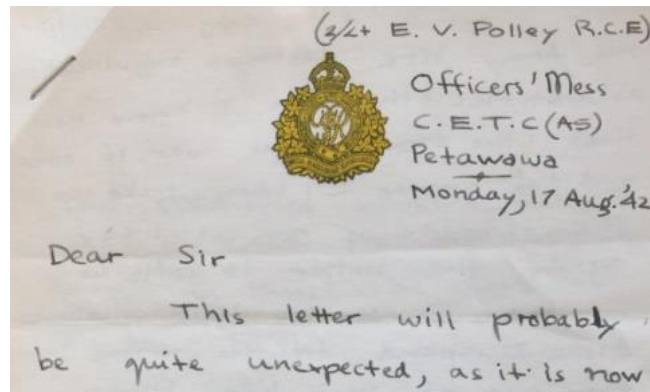 (2/Lt E. V. Polley R.C.E)
Officers' Mess
C.E.T.C (AS)
Petawawa
Monday, 17 Aug. '42
Dear Sir
This letter will probably
be quite unexpected, as it is now